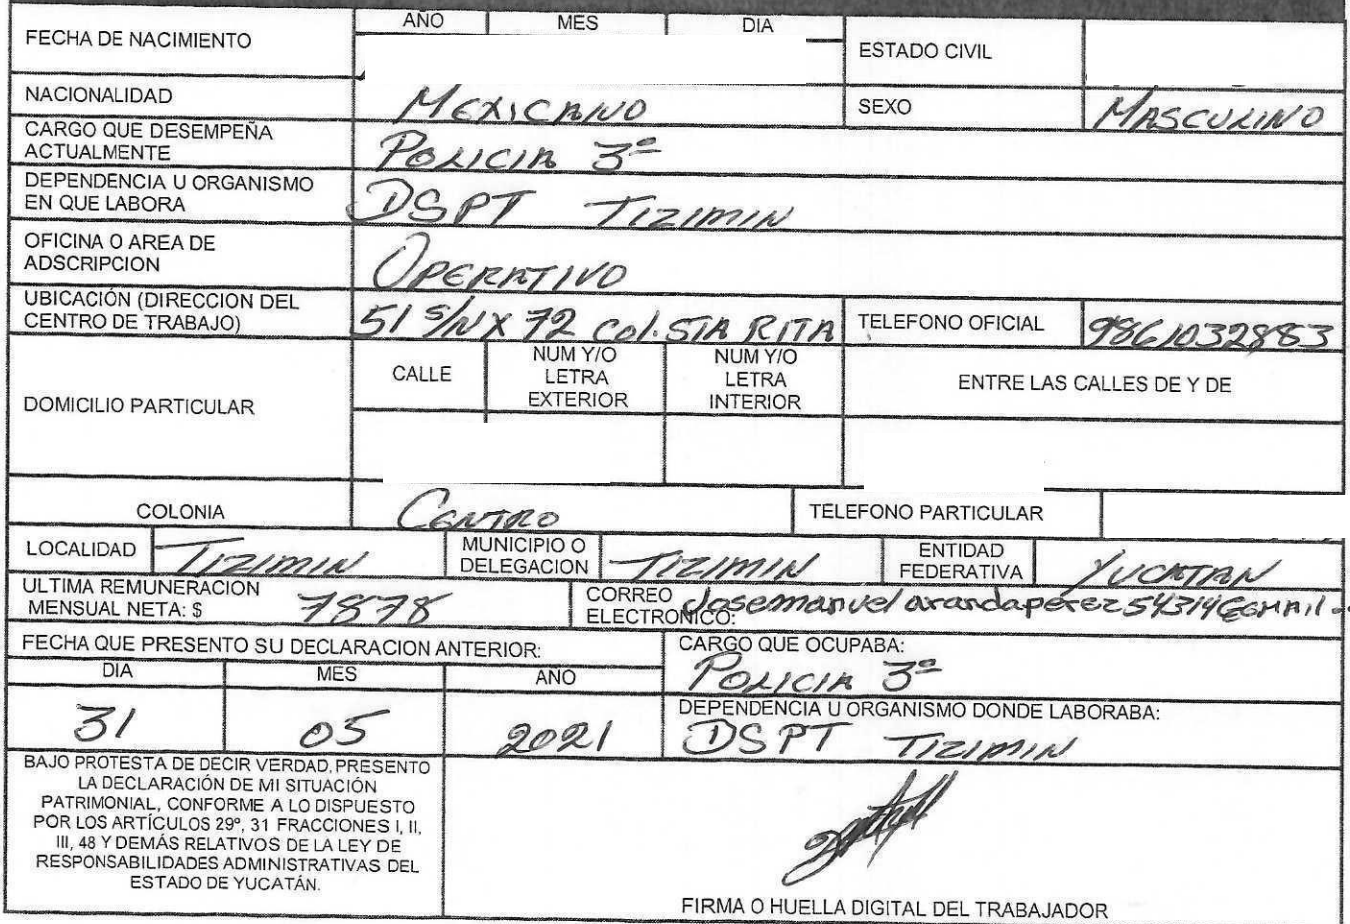 AÑO MES DIA
FECHA DE NACIMIENTO
ESTADO CIVIL
NACIONALIDAD MEXICANO SEXO MASCULINO
CARGO QUE DESEMPEÑA
ACTUALMENTE POLICIA 3º
DEPENDENCIA U ORGANISMO
EN QUE LABORA DSPT TIZIMIN
OFICINA O AREA DE
ADSCRIPCION OPERATIVO
UBICACIÓN (DIRECCION DEL
CENTRO DE TRABAJO) 51 S/N X 72 Col. STA RITA TELEFONO OFICIAL 9861032883
DOMICILIO PARTICULAR
CALLE
NUM Y/O
LETRA
EXTERIOR
NUM Y/O
LETRA
INTERIOR
ENTRE LAS CALLES DE Y DE
COLONIA CENTRO TELEFONO PARTICULAR
LOCALIDAD TIZIMIN
MUNICIPIO O
DELEGACION TIZIMIN
ENTIDAD
FEDERATIVA YUCATAN
ULTIMA REMUNERACION
MENSUAL NETA: $ 7878
CORREO
ELECTRONICO: Josemanuelarandaperez54314@GMAIL
FECHA QUE PRESENTO SU DECLARACION ANTERIOR:
DIA MES AÑO
31 05 2021
CARGO QUE OCUPABA:
POLICIA 3º
DEPENDENCIA U ORGANISMO DONDE LABORABA:
DSPT TIZIMIN
BAJO PROTESTA DE DECIR VERDAD, PRESENTO
LA DECLARACIÓN DE MI SITUACIÓN
PATRIMONIAL, CONFORME A LO DISPUESTO
POR LOS ARTÍCULOS 29º, 31 FRACCIONES I, II,
III, 48 Y DEMÁS RELATIVOS DE LA LEY DE
RESPONSABILIDADES ADMINISTRATIVAS DEL
ESTADO DE YUCATÁN.
FIRMA O HUELLA DIGITAL DEL TRABAJADOR